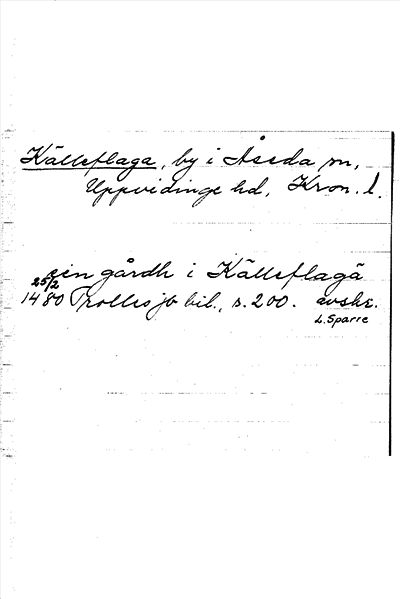 Källeflaga, by i Åseda sn,
Uppvidinge hd, Kron. l.
ein gårdh i Källeflagä
25/2
1480 Trolles jb bil., s. 200. avskr.
L. Sparre